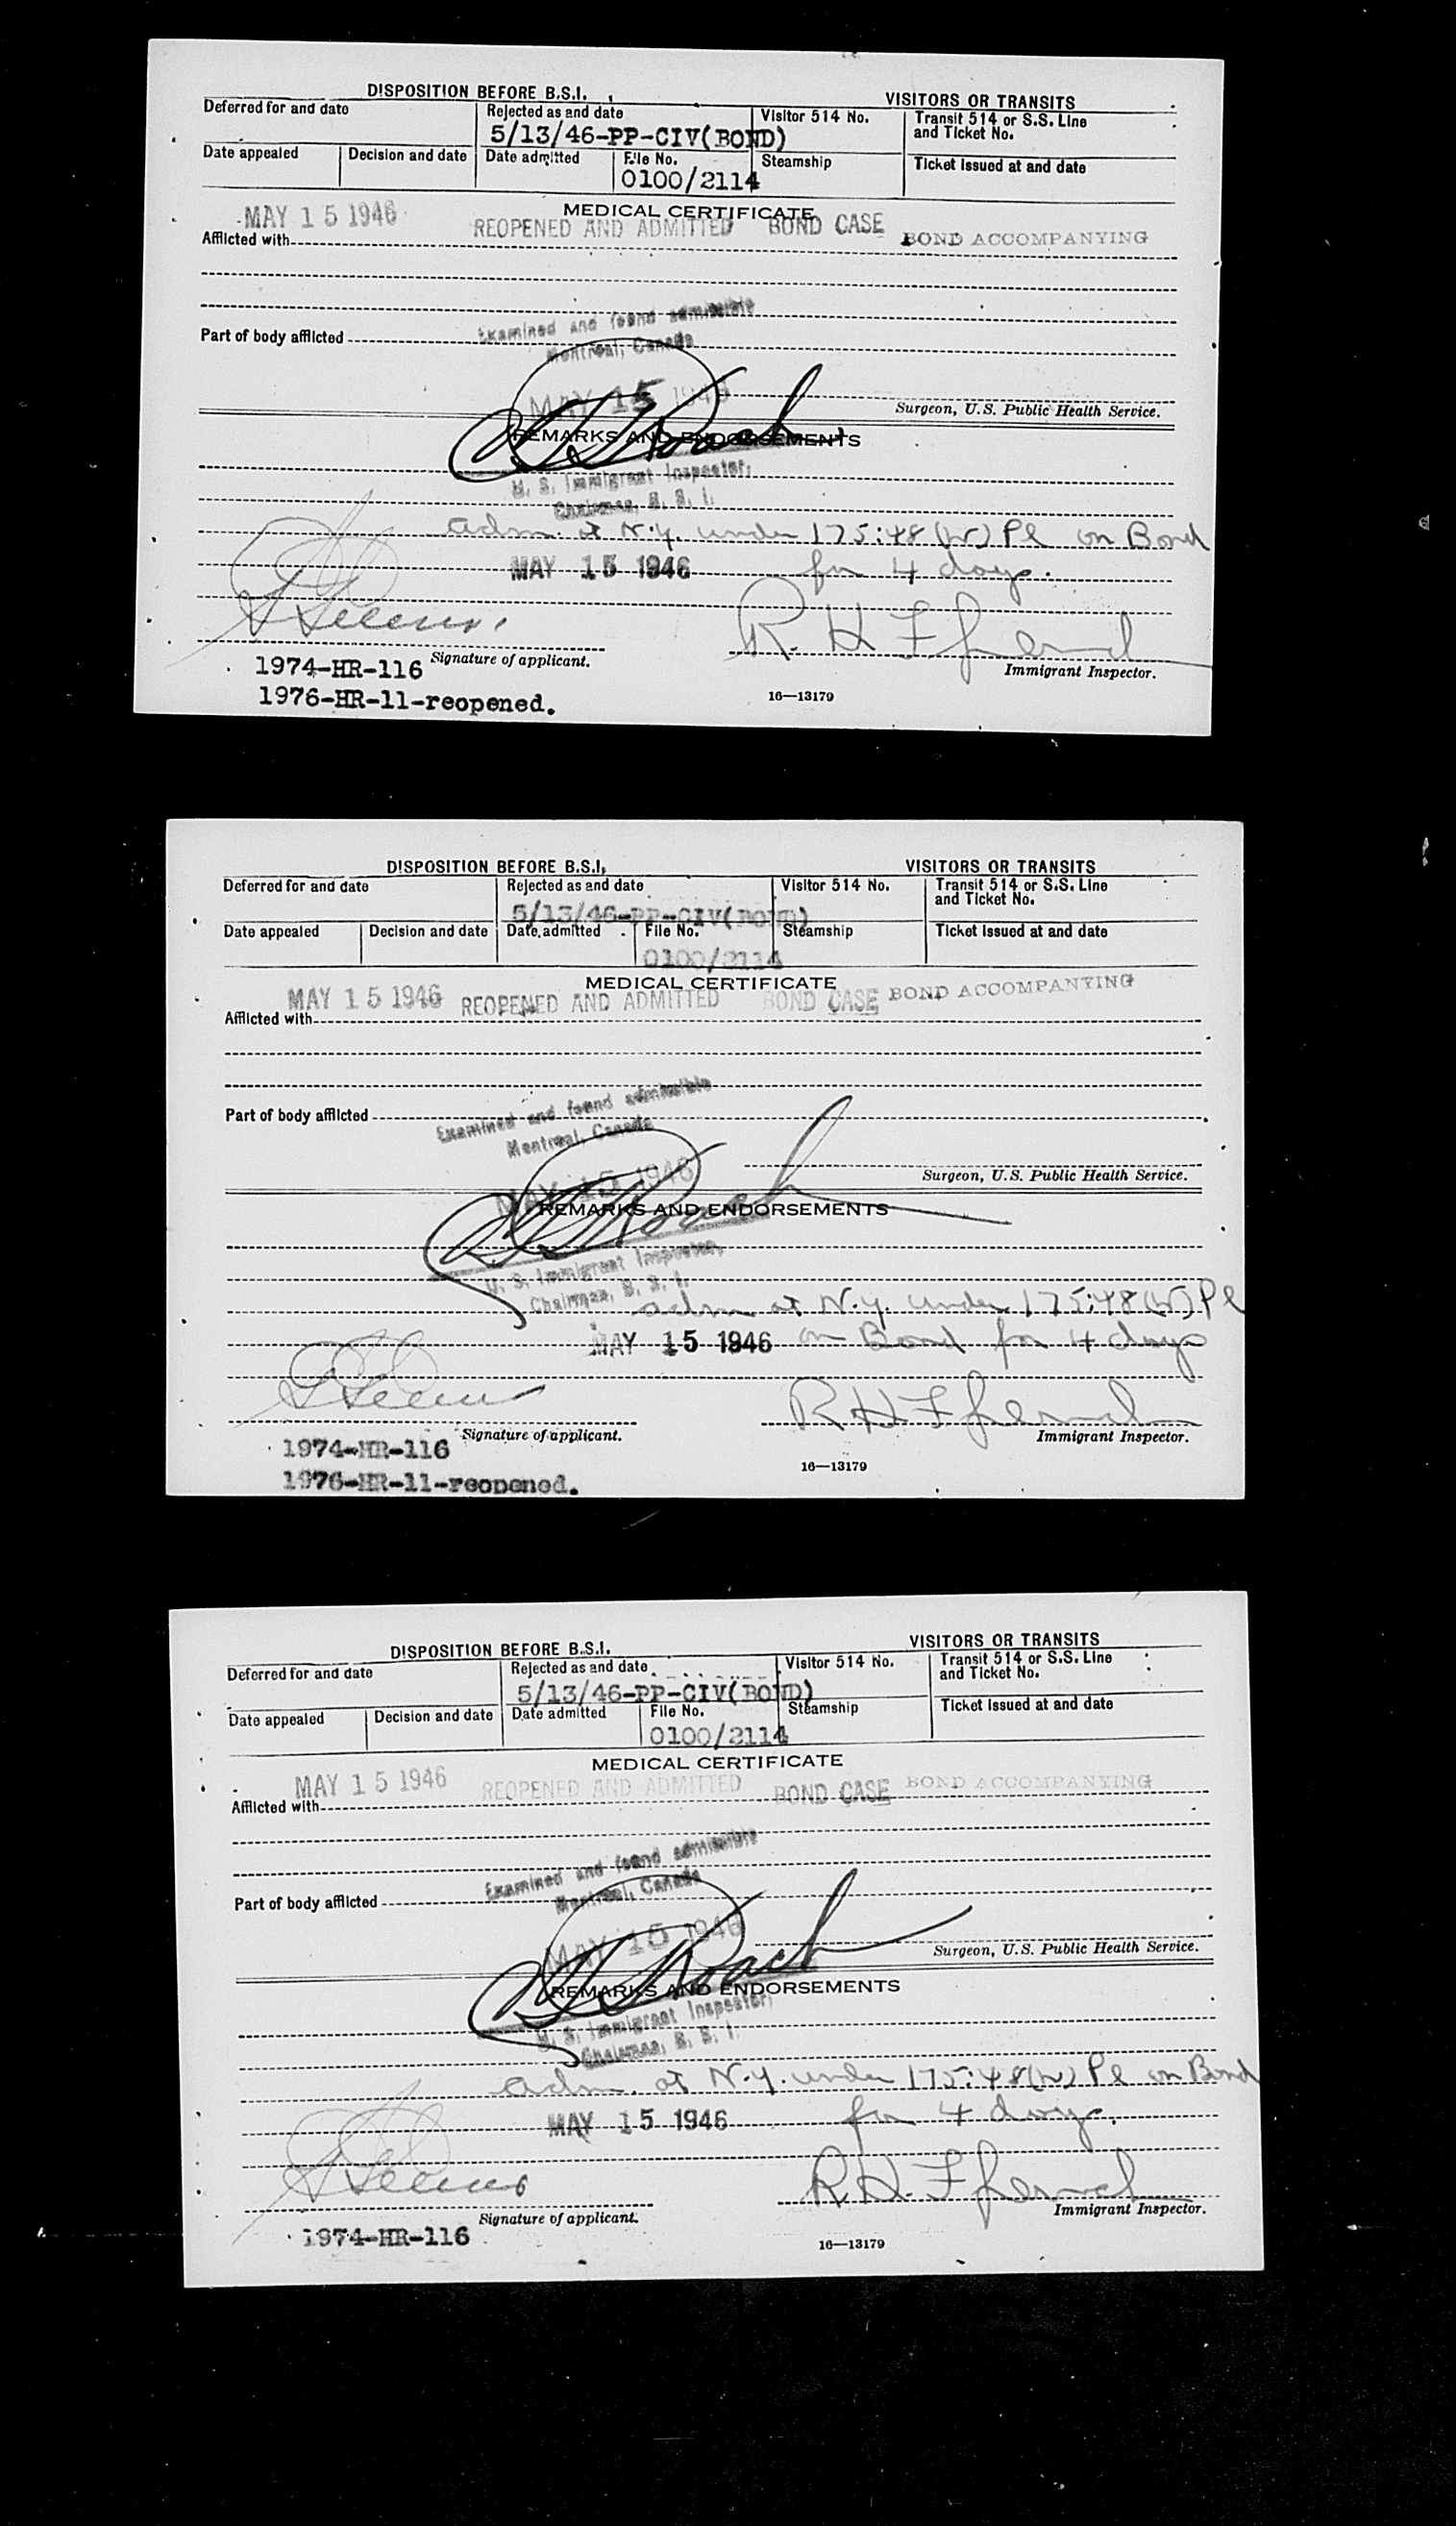 DISPOSITION BEFORE B.S.I.
VISITORS OR TRANSITS
Deferred for and date
Rejected as and date
Visitor 514 No.
Transit 514 or S.S. Line
and Ticket No.
5/13/46-PP-CIV(BOND)
Date appealed
Decision and date
Date admitted
File No.
Steamship
Ticket issued at and date
0100/2114
MEDICAL CERTIFICATE
MAY 15 1946
REOPENED AND ADMITTED
BOND CASE
BOND ACCOMPANYING
Afflicted with
Examined and found admissible
Part of body afflicted
Montreal, Canada
MAY 15 1946
Surgeon, U.S. Public Health Service.
REMARKS AND ENDORSEMENTS
U. S. Immigrant Inspector,
Chairman, B. S. I.
adm. at N.Y. under 175:48 Pl on Bond
MAY 15 1946
for 4 days.
Signature of applicant.
Immigrant Inspector.
1974-HR-116
1976-HR-11-reopened.
16—13179
DISPOSITION BEFORE B.S.I.
VISITORS OR TRANSITS
Deferred for and date
Rejected as and date
Visitor 514 No.
Transit 514 or S.S. Line
and Ticket No.
5/13/46-PP-CIV(BOND)
Date appealed
Decision and date
Date admitted
File No.
Steamship
Ticket issued at and date
0100/2114
MEDICAL CERTIFICATE
MAY 15 1946
REOPENED AND ADMITTED
BOND CASE
BOND ACCOMPANYING
Afflicted with
Examined and found admissible
Part of body afflicted
Montreal, Canada
MAY 15 1946
Surgeon, U.S. Public Health Service.
REMARKS AND ENDORSEMENTS
U. S. Immigrant Inspector,
Chairman, B. S. I.
adm at N.Y. under 175:48 Pl
MAY 15 1946
on Bond for 4 days
Signature of applicant.
Immigrant Inspector.
1974-HR-116
1976-HR-11-reopened.
16—13179
DISPOSITION BEFORE B.S.I.
VISITORS OR TRANSITS
Deferred for and date
Rejected as and date
Visitor 514 No.
Transit 514 or S.S. Line
and Ticket No.
5/13/46-PP-CIV(BOND)
Date appealed
Decision and date
Date admitted
File No.
Steamship
Ticket issued at and date
0100/2114
MEDICAL CERTIFICATE
MAY 15 1946
REOPENED AND ADMITTED
BOND CASE
BOND ACCOMPANYING
Afflicted with
Examined and found admissible
Part of body afflicted
Montreal, Canada
MAY 15 1946
Surgeon, U.S. Public Health Service.
REMARKS AND ENDORSEMENTS
U. S. Immigrant Inspector,
Chairman, B. S. I.
adm. at N.Y. under 175:48 Pl on Bond
MAY 15 1946
for 4 days.
Signature of applicant.
Immigrant Inspector.
1974-HR-116
16—13179